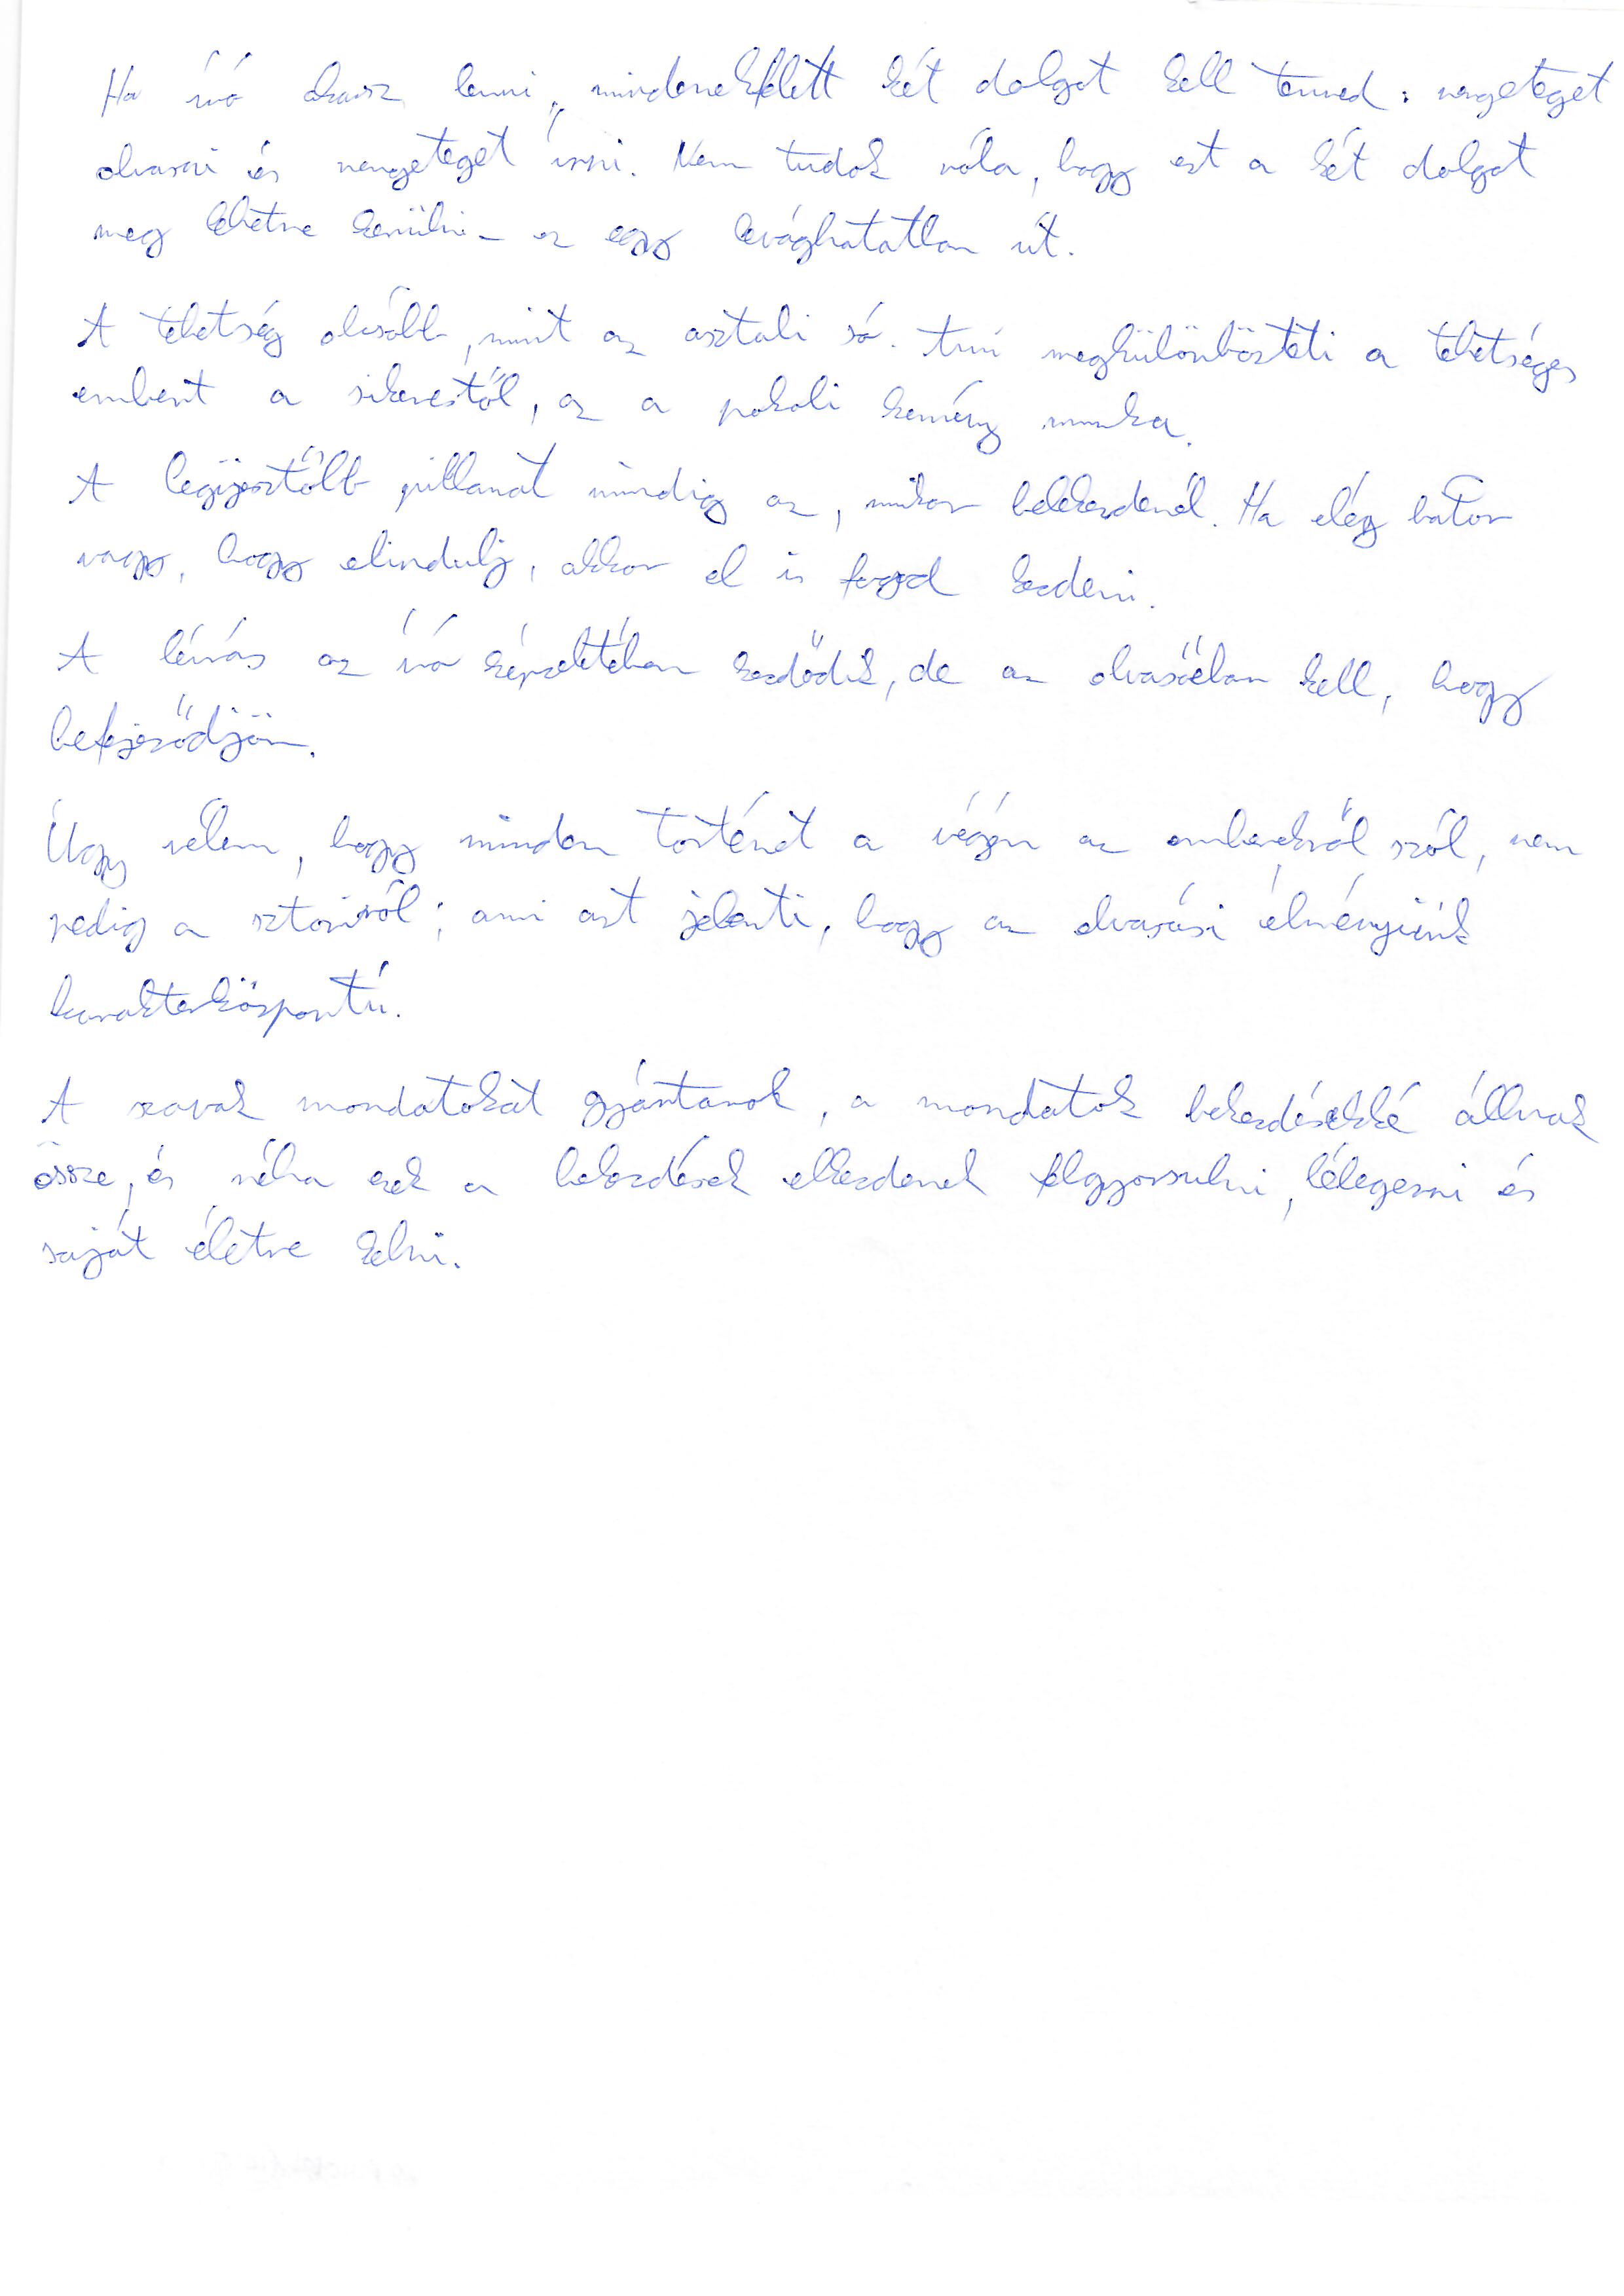 Ha író akarsz lenni, mindenekfelett két dolgot kell tenned: rengeteget
olvasni és rengeteget írni. Nem tudok róla, hogy ezt a két dolgot
meg lehetne kerülni - ez egy levághatatlan út.
A tehetség olcsóbb, mint az asztali só. Ami megkülönbözteti a tehetséges
embert a sikerestől, az a pokoli kemény munka.
A legijesztőbb pillanat mindig az, mikor belekezdenél. Ha elég bátor
vagy, hogy elindulj, akkor el is fogod kezdeni.
A leírás az író képzeletében kezdődik, de az olvasóéban kell, hogy
befejeződjön.
Úgy vélem, hogy minden történet a végén az emberekről szól, nem
pedig a sztoriról; ami azt jelenti, hogy az olvasási élményünk
karakterközpontú.
A szavak mondatokat gyártanak, a mondatok bekezdésekké állnak
össze, és néha ezek a bekezdések elkezdenek felgyorsulni, lélegezni és
saját életre kelni.